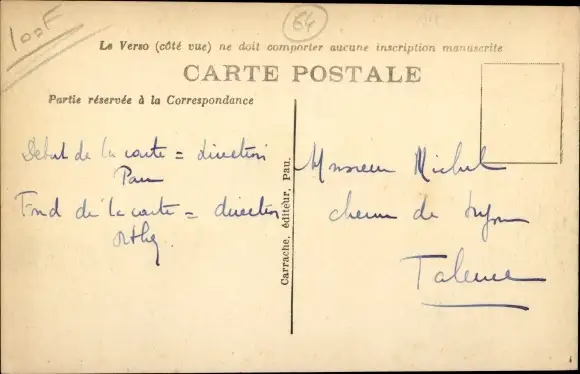 100F
64
Le Verso (côté vue) ne doit comporter aucune inscription manuscrite
CARTE POSTALE
Partie réservée à la Correspondance
Début de la carte = direction
Pau
Fond de la carte = direction
Orthez
Carrache, éditeur, Pau.
Monsieur Michel
chemin de
Talence